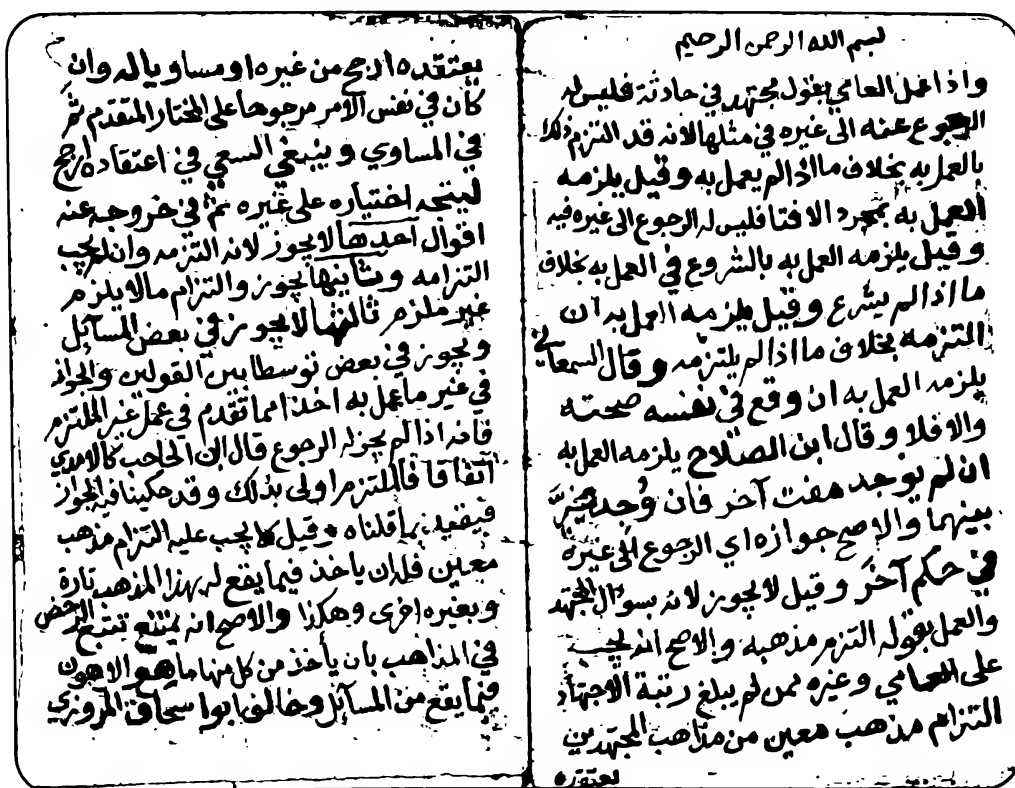 بسم الله الرحمن الرحيم
واذا عمل العامي بقول مجتهد في حادثة فليس له
الرجوع عنه الى غيره في مثلها لانه قد التزم ذلك
بالعمل به بخلاف ما اذا لم يعمل به وقيل يلزمه
العمل به بمجرد الافتا فليس له الرجوع الى غيره فيه
وقيل يلزمه العمل به بالشروع في العمل به بخلاف
ما اذا لم يشرع وقيل يلزمه العمل به ان
التزمه بخلاف ما اذا لم يلتزمه وقال السمعاني
يلزمه العمل به ان وقع في نفسه صحته
والا فلا وقال ابن الصلاح يلزمه العمل به
ان لم يوجد مفت آخر فان وُجد تخيّر
بينهما والاصح جوازه اي الرجوع الى غيره
في حكم آخر وقيل لا يجوز لانه بسوال المجتهد
والعمل بقوله التزم مذهبه والاصح انه يجب
على العامي وغيره ممن لم يبلغ رتبة الاجتهاد
التزام مذهب معين من مذاهب المجتهدين
يعتقده
يعتقده ارجح من غيره او مساويا له وان
كان في نفس الامر مرجوحا على المختار المتقدم ثم
في المساوي وينبغي السعي في اعتقاده ارجح
ليتجه اختياره على غيره ثم في خروجه عنه
اقوال احدها لا يجوز لانه التزمه وان لم يجب
التزامه وثانيها يجوز والتزام ما لا يلزم
غير ملزم ثالثها لا يجوز في بعض المسائل
ويجوز في بعض توسطا بين القولين والجواز
في غير ما عمل به اخذا مما تقدم في عمل غير الملتزم
فانه اذا لم يجز له الرجوع قال ابن الحاجب كالامدي
اتفاقا فالملتزم اولى بذلك وقد حكينا فيه الجواز
فيقيد بما قلناه وقيل لا يجب عليه التزام مذهب
معين فله ان ياخذ فيما يقع له بهذا المذهب تارة
وبغيره اخرى وهكذا والاصح انه يمتنع تتبع الرخص
في المذاهب بان يأخذ من كل منها ما هو الاهون
فيما يقع من المسائل وخالف ابوا سحاق المروزي